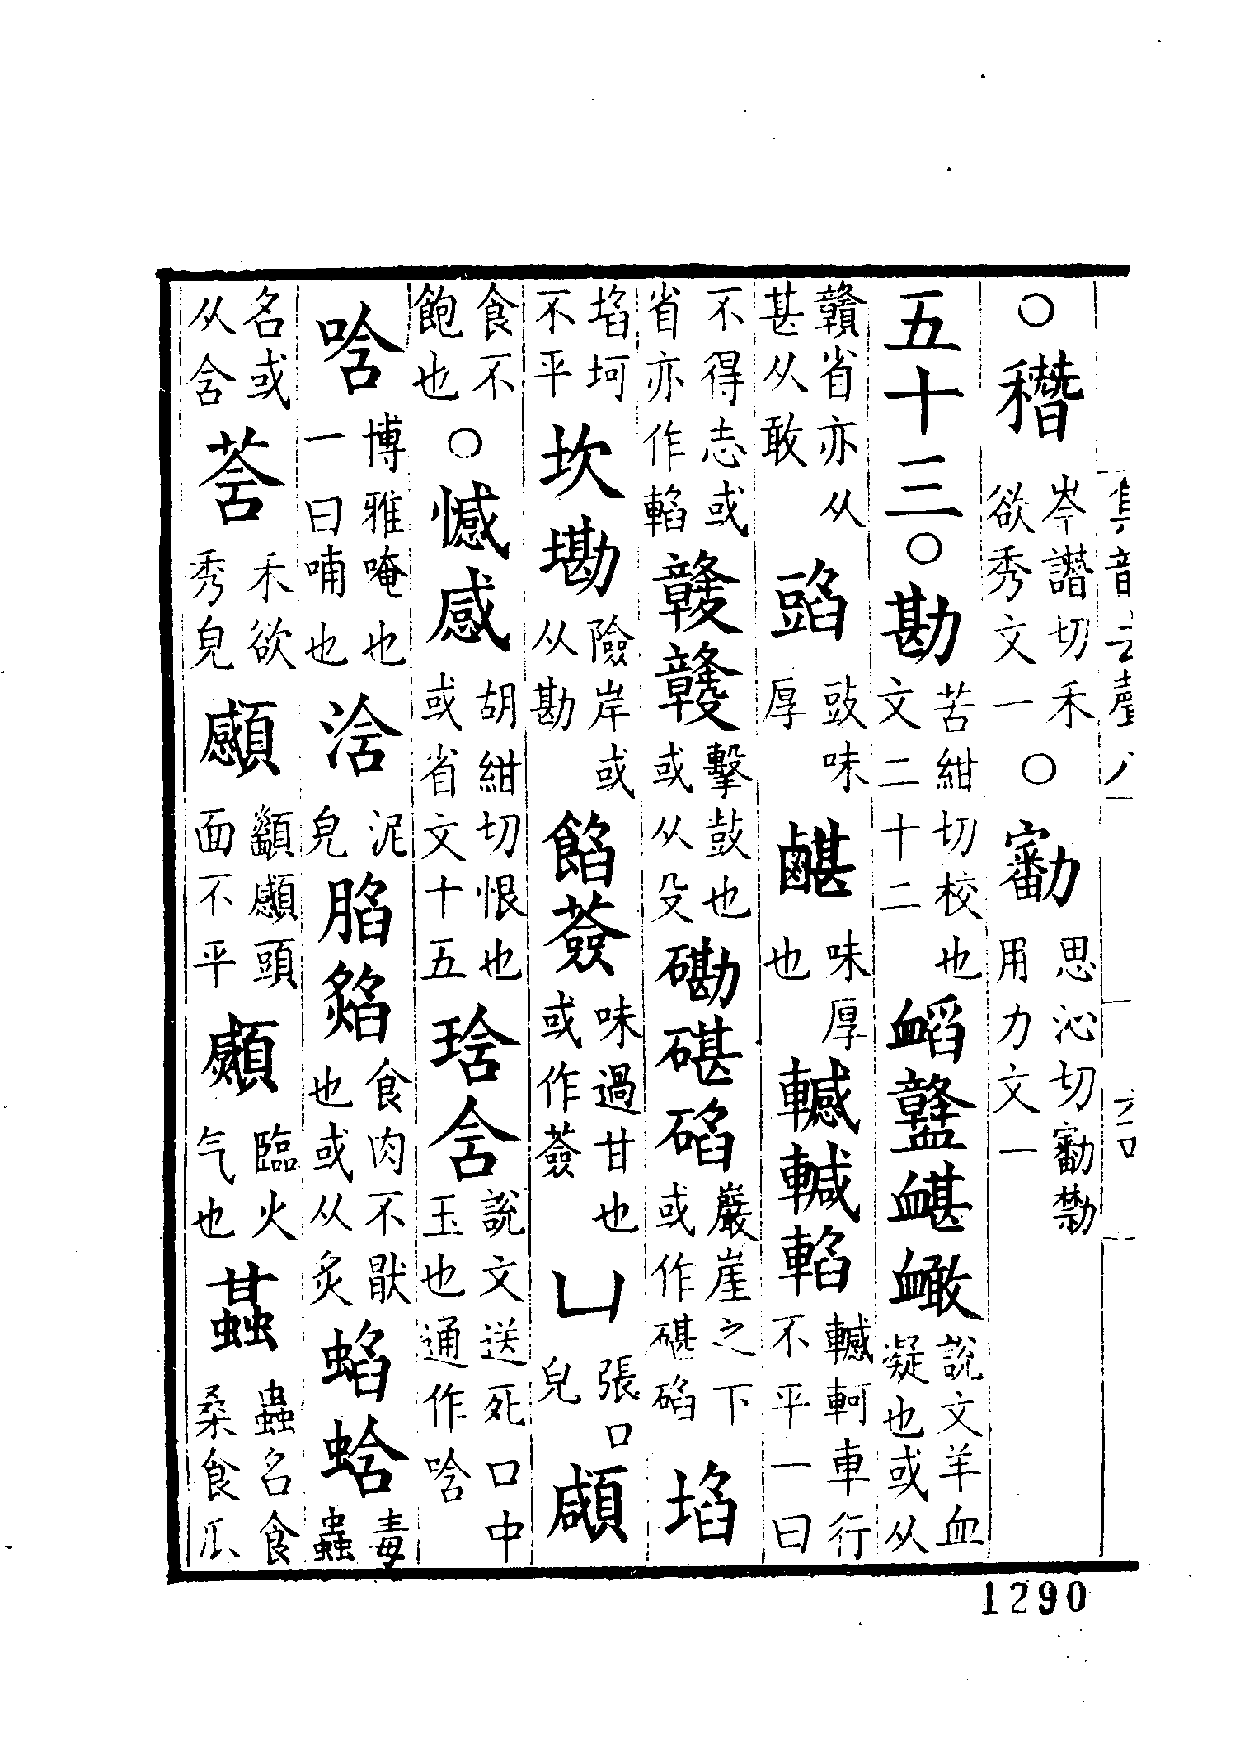 集韻去聲八
○ 岑譖切禾欲秀文一○ 思沁切用力文一
五十三○勘苦紺切校也文二十二䘓 説文羊血凝也或从
贛省亦从甚从敢 豉味厚 味厚也轗 輡轗軻車行不平一曰
不得志或省亦作輡竷 擊鼓也或从殳磡碪 巖崖之下或作碪 埳
埳坷不平坎墈險岸或从勘餡薟味過甘也或作薟凵張口皃顑
食不飽也○憾感胡紺切恨也或省文十五琀含説文送死口中玉也通作唅
唅博雅唵也一曰喃也浛泥皃䐄 食肉不猒也或从炙蜭蛿毒蟲
名或从含莟禾欲秀皃 頭面不平 臨火气也 蟲名食桑食瓜
1290